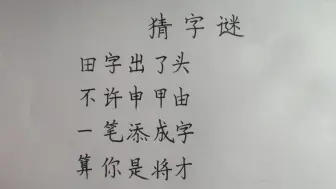 猜字谜
田字出了头
不许申甲由
一笔添成字
算你是将才